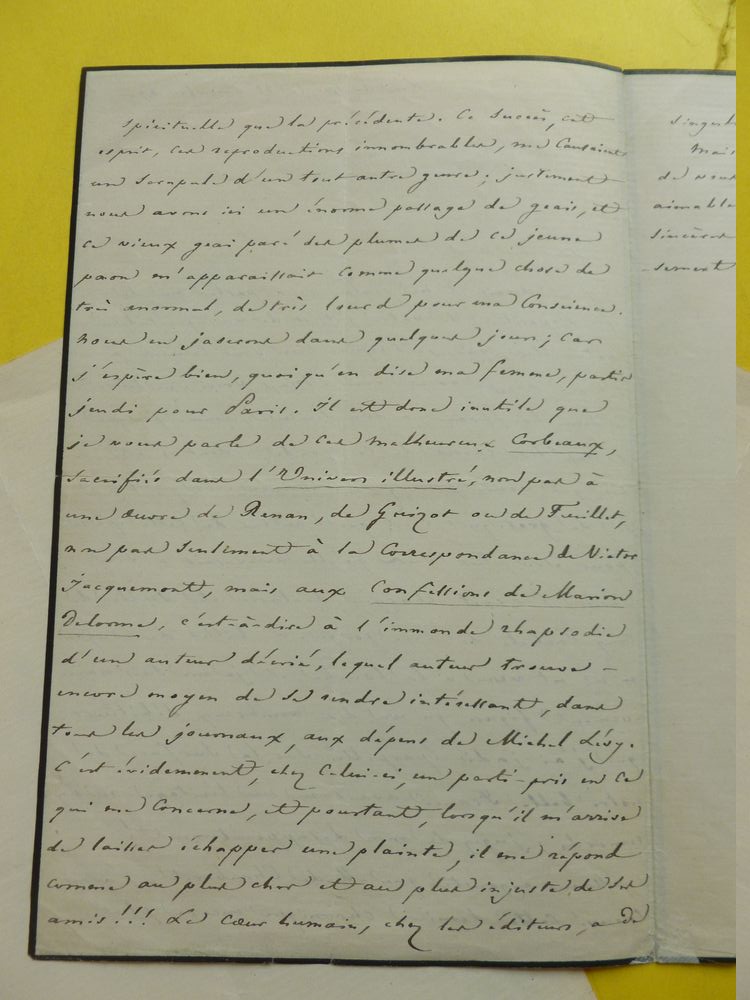 spirituelle que la précédente. Ce succès, cet
esprit, ces reproductions innombrables, me causaient
un scrupule d'un tout autre genre ; justement
nous avons ici un énorme passage de geais, et
ce vieux geai paré des plumes de ce jeune
paon m'apparaissait comme quelque chose de
très anormal, de très lourd pour ma conscience.
Nous en jaserons dans quelques jours ; car
j'espère bien, quoiqu'en dise ma femme, partir
jeudi pour Paris. Il est donc inutile que
je vous parle de ces malheureux Corbeaux,
sacrifiés dans l'Univers illustré, non pas à
une œuvre de Renan, de Guizot ou de Feuillet,
non pas seulement à la Correspondance de Victor
Jacquemont, mais aux Confessions de Marion
Delorme, c'est-à-dire à l'immonde rhapsodie
d'un auteur décrié, lequel auteur trouve –
encore moyen de se rendre intéressant, dans
tous les journaux, aux dépens de Michel Lévy.
C'est évidemment, chez celui-ci, un parti-pris en ce
qui me concerne, et pourtant, lorsqu'il m'arrive
de laisser échapper une plainte, il me répond
comme au plus cher et au plus injuste de ses
amis !!! Le cœur humain, chez les éditeurs, a de
singul
Mais
de vous
aimable
sincères
sement